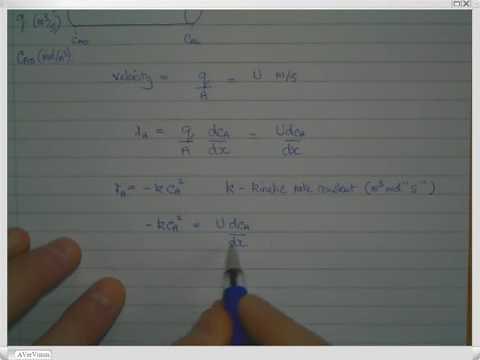 q (m³/s)
C_A0 C_AL
C_A0 (mol/m³)
velocity = q/A = U m/s
r_A = q/A dC_A/dx = U dC_A/dx
r_A = -kC_A² k - kinetic rate constant (m³mol⁻¹s⁻¹)
-kC_A² = U dC_A/dx
AVerVision